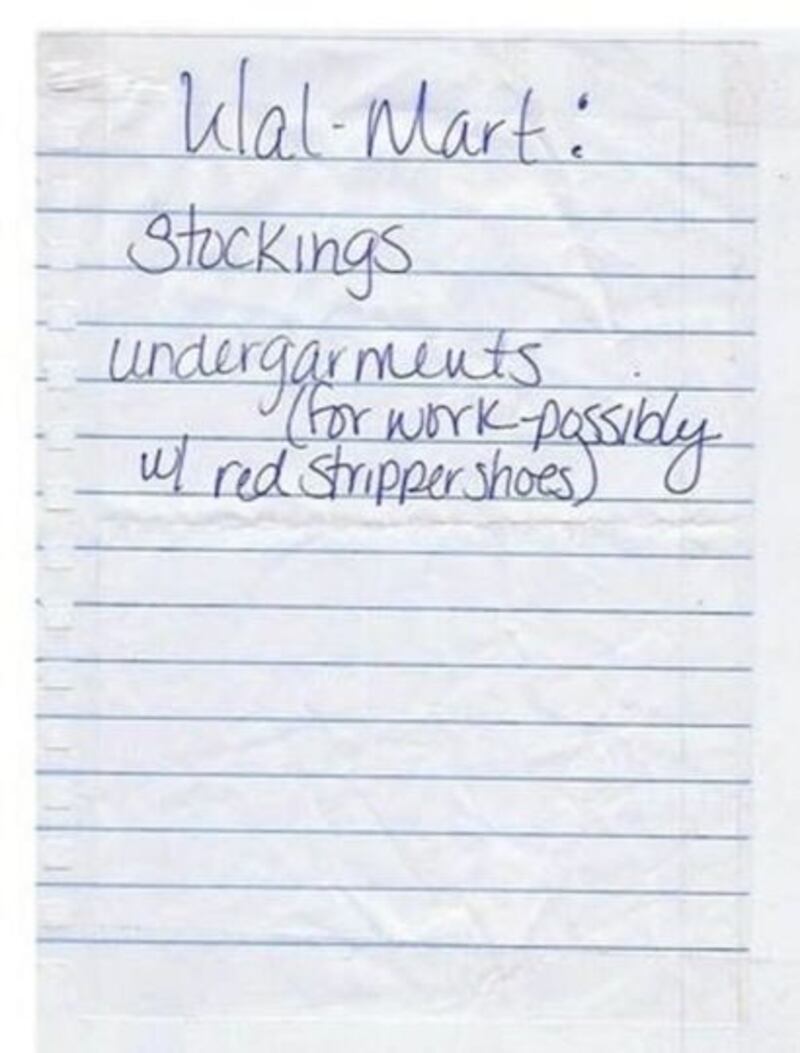 Wal-Mart:
Stockings
undergarments
(for work-possibly
w/ red stripper shoes)